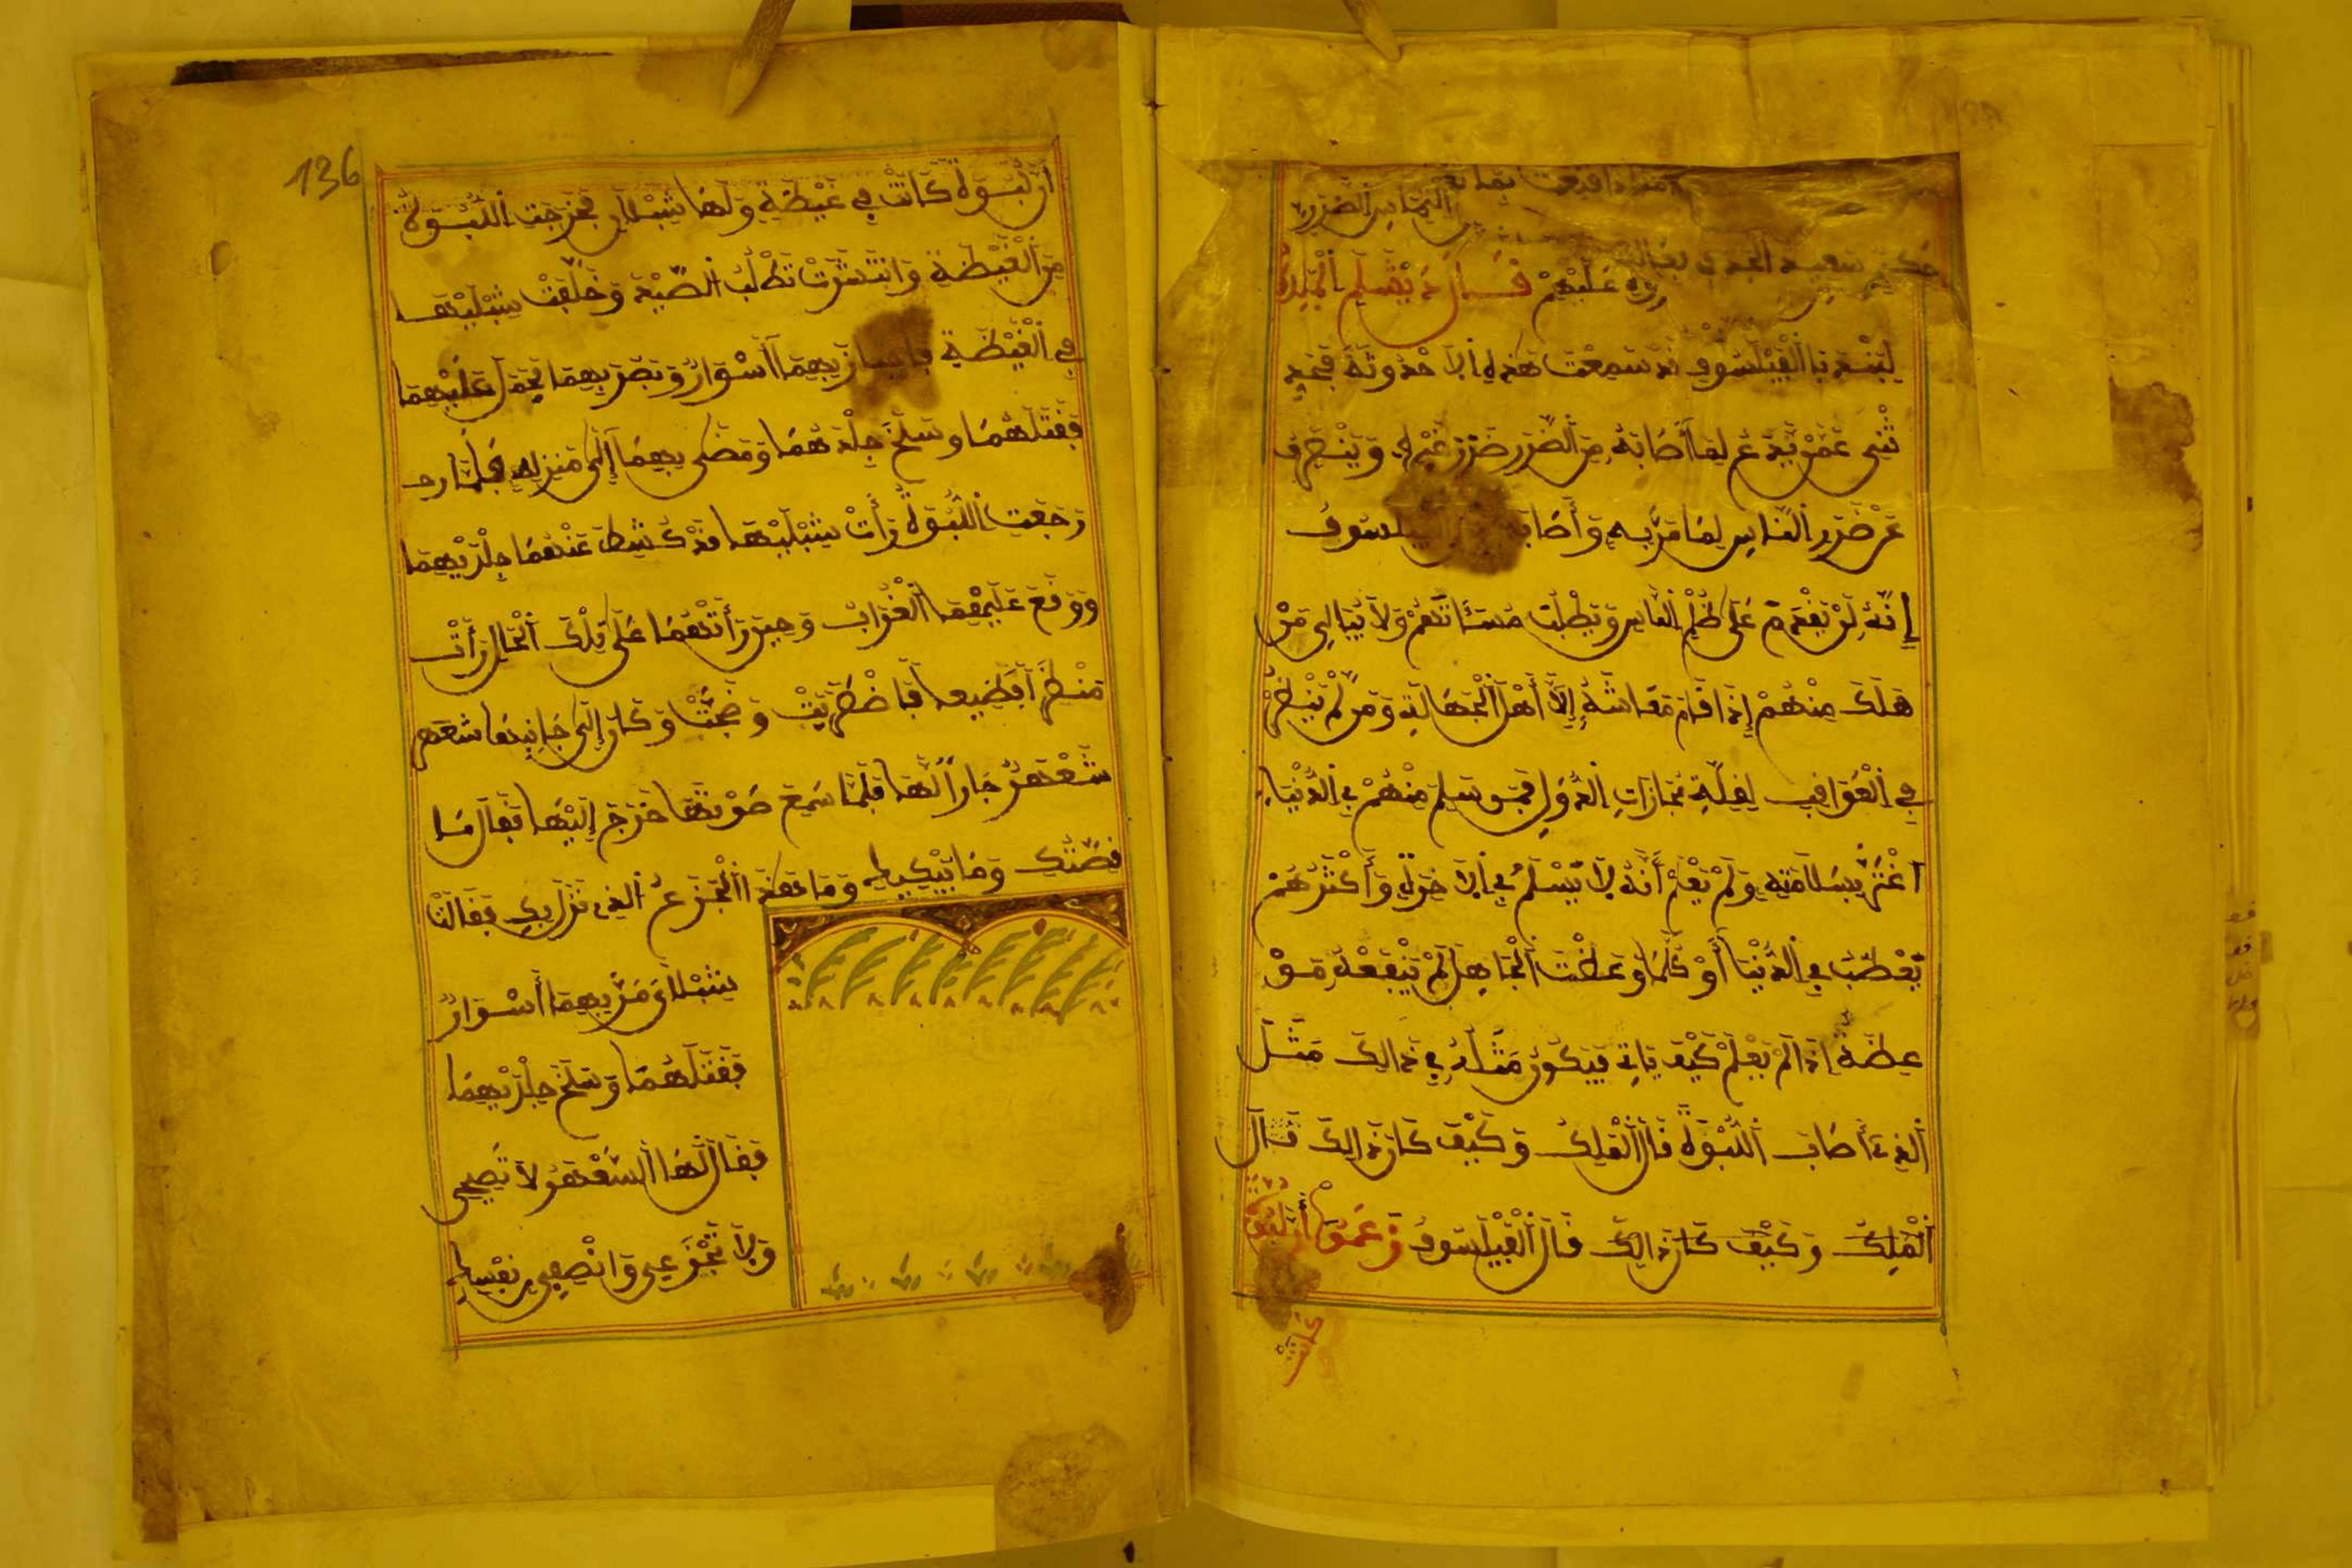 عليهم فال دبشليم الملك
لبيدبا الفيلسوف قد سمعت هذه الاحدوثة فحد
ثنى عمن يدع لما أصابه من الضرر ضرر غيره وينزجر
عن ضرر الناس لما مر به وأصابه الفيلسوف
إنه لن يقدم على ظلم الناس ويطلب مسئاتهم ولا يبالي من
هلك منهم إذا قام معاشه إلا أهل الجهالة ومن لم ينظر
في العواقب لقلة مجازات الدول فمن سلم منهم في الدنيا
اغتر بسلامته ولم يعلم أنه لا يسلم في الاخرة وأكثرهم
يعطب في الدنيا أو كلما وعظت الجاهل لم ينفعه من
عظة اذا لم يعلم كيف ياتي فيكون مثله في ذالك مثل
الذي أصاب اللبوة قال الملك وكيف كان ذالك قال
الملك وكيف كان ذالك قال الفيلسوف زعموا أن لبوة
كانت
136
أن لبوة كانت في غيطة ولها شبلان فخرجت اللبوة
من الغيطة وانتشرت تطلب الصيد وخلفت شبليها
في الغيطة بهما أسوار وبصر بهما فحمل عليهما
فقتلهما وسلخ جلدهما ومضى بهما إلى منزله فلما
رجعت اللبوة رأت شبليها قد كشط عنهما جلديهما
ووقع عليهما الغراب وحين رأتهما على تلك الحال رأت
منظرا فظيعا فاضطربت وضجت وكان إلى جانبها شعهر
شعهر جارا لها فلما سمع صوتها خرج إليها فقال ما
قصتك وما يبكيك وما هذا الجزع الذي نزل بك فقالت
شبلاي مر بهما أسوار
فقتلهما وسلخ جلديهما
فقال لها الشعهر لا تضجي
ولا تجزعي وانصفي نفسك